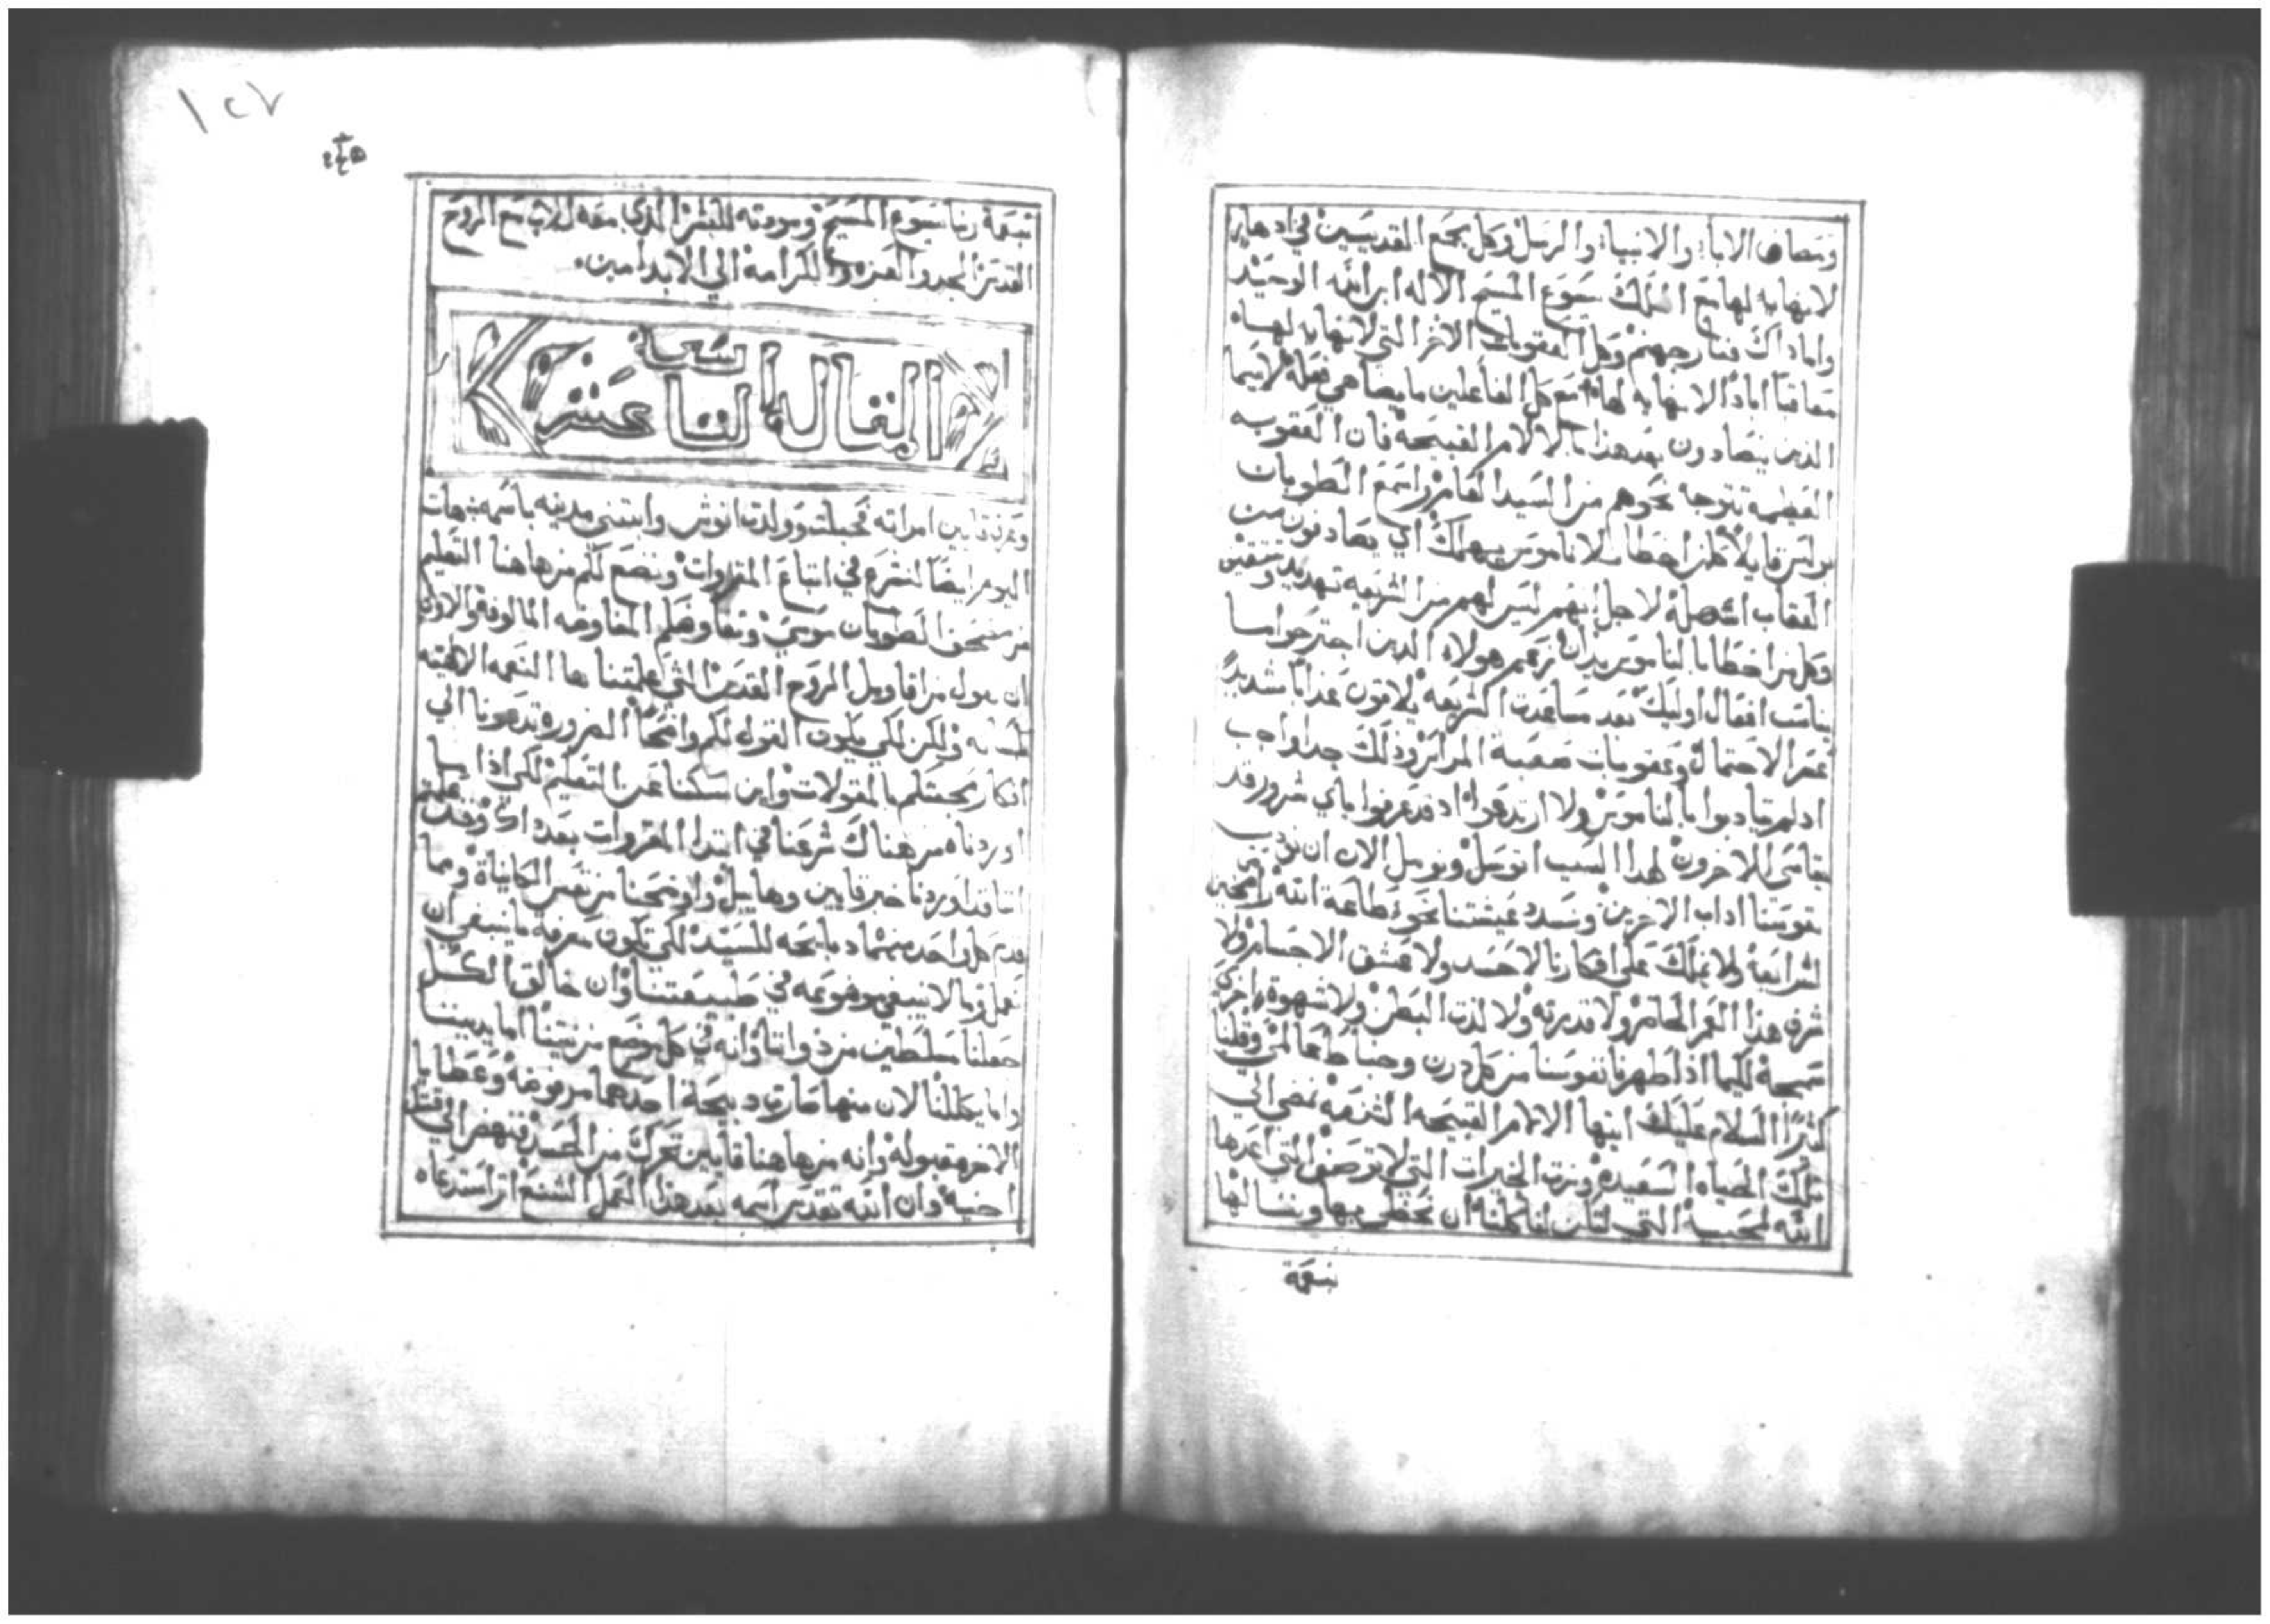 ومصاف الاباء والانبياء والرسل وكل مجمع القديسين في ادهار
لانهايه لها مع الملك يسوع المسيح الاله ابن الله الوحيد
واما ذاك فنار جهنم وكل العقوبات الاخر التي لانهايه لها
معاقبًا ابادًا لانهايه لها مع كل الفاعلين ما يضاهي فعله لاسيما
الذين يتصادون بعد هذا بالالام القبيحة فان العقوبه
العظيمه تتوجا نحوهم من السيد الغامر واسمع الطوبان
بولس قايلًا كلمن اخطا بلا ناموس يهلك اي يصادفون من
العقاب اسهله لاجل انهم ليس لهم من الشريعه تهديد وتثقيف
وكل من اخطا بالناموس يدان نعم هولاء الذين اجترحوا ما
يناسب افعال اوليك بعد مساعدت الشريعه يلاقون عذابًا شديدًا
عسر الاحتمال وعقوبات صعبة المراس وذلك جدا واجب
اذ لم يتادبوا بالناموس ولا ارتدعوا اذ قد عرفوا باي شرور قد
يقاسي الاخرون لهذا السبب اتوسل ونوسل الان ان تودب
نفوسنا اداب الاخرين ونسدد عيشتنا نحو طاعة الله رامحين
لشرايعه ولا نملك على افكارنا لا حسد ولا عشق الاجسام ولا
شرف هذا العمر الحاضر ولا قدرته ولا لذت البطن ولا شهوة اخرى
سمجة لكيما اذا طهرنا نفوسنا من كل درن وحبا طعالمي وقلنا
كثيرًا السلام عليك ايتها الالام القبيحه الشنعه نمضي الي
تلك الحياه السعيدة ونرث الخيرات التي لا توصف التي اعدها
الله لمحبيه التي لتكن لنا كلنا ان نحظى بها وننالها
بنعمة
١٢٧
بنعمة ربنا يسوع المسيح ومودته للبشر الذي معه للاب مع الروح
القدس المجد والعزه والكرامة الي الابد امين.
المقاله التاسعة عشر
وعرف قايين امراته فحبلت وولدت انوش وابتنى مدينه باسم
اليوم ايضًا لنشرع في اتباع المقروات ونضع لكم من هاهنا التعليم
من مصحف الطوبان موسى وتعاوهلم المفاوضه المالوفة والاولى
ان نقول من اقاويل الروح القدس التي علمتنا ها النعمه الالهيه
بلسانه ولكن لكي يكون القول لكم واضحًا الضروره تدعونا الي
اذكار محبتكم بالمقولات واين سكتنا عن التعليم لكي اذا ما
اوردناه من هناك شرعنا في ابتدا المقروات بعد ذاك وقد علمتم
اننا قد اوردنا خبر قايين وهابيل واوضحنا من نفس الكاينات ومما
قدم كل واحد منهما ذبايحه للسيد لكي تكون معرفة ما ينبغي ان
نعمل وما لا ينبغي موضوعه في طبيعتنا وان خالق الكل
جعلنا مسلطين من ذواتنا وانه في كل موضع من نيتنا اما يديننا
واما يكللنا لان منها صارت ذبيحة احدهما مرفوضة وعطايا
الاخر مقبولة وانه من هاهنا قايين تحرك من الحسد فنهض الي قتل
اخيه وان الله تقدس اسمه بعد هذا العمل الشنع اثر استدعاه